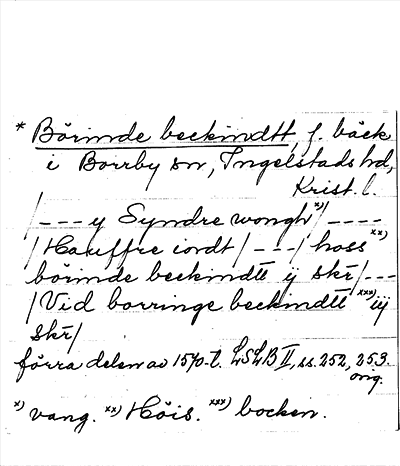 * Börinde beckindtt, f. bäck
i Borrby sn, Ingelstads hd,
Krist. l.
/--- y Syndre wongh x)/----
/Hauffre iordt/---/hoss xx)
börinde beckindtt ij skr/---
/Vid borringe beckindtt xxx) iij
skr/
förra delen av 1570-t. LSLB II, ss. 252, 253.
orig.
x) vang. xx) Höis. xxx) bocken.